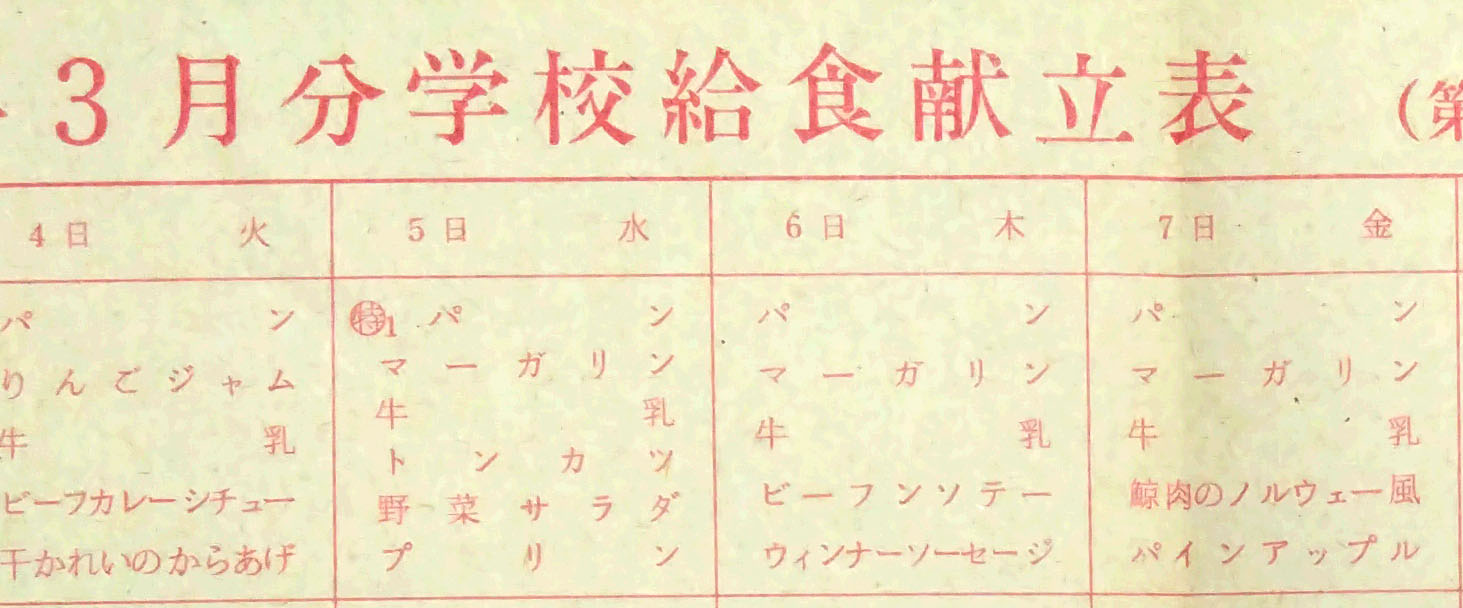 3月分学校給食献立表 (第
4日 火
パン
りんごジャム
牛乳
ビーフカレーシチュー
干かれいのからあげ
5日 水
㊕1 パン
マーガリン
牛乳
トンカツ
野菜サラダ
プリン
6日 木
パン
マーガリン
牛乳
ビーフンソテー
ウィンナーソーセージ
7日 金
パン
マーガリン
牛乳
鯨肉のノルウェー風
パインアップル